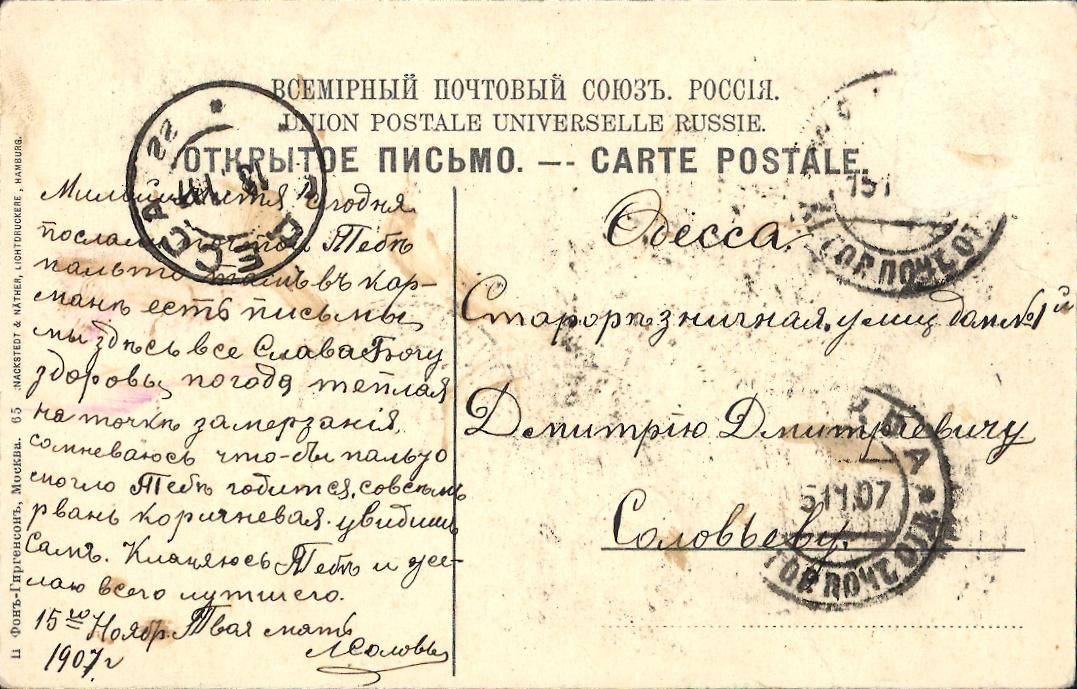 ВСЕМІРНЫЙ ПОЧТОВЫЙ СОЮЗЪ. РОССІЯ.
UNION POSTALE UNIVERSELLE RUSSIE.
ОТКРЫТОЕ ПИСЬМО. — CARTE POSTALE.
Милый сегодня
послали почтой Тебѣ
пальто тамъ въ кар-
манѣ есть письмы
мы здѣсь все Слава Богу
здоровы погода теплая
на точкѣ замерзанія
сомневаюсь что-бы пальто
могло Тебѣ годится, совсѣмъ
рвань коричневая. увидишь
Самъ. Кланяюсь Тебѣ и
лаю всего лутшего.
15го Ноябр. Твая мать
1907г
Одесса.
Старорѣзничная, улиц. дом №1й
Дмитрію Дмитріевичу
Соловьеву.
ОДЕССА
22
ГОР. ПОЧТ.
15 11.07
ГОР. ПОЧТ.
Ц Фонъ-Гиргенсонъ, Москва. 65 KNACKSTEDT & NÄTHER, LICHTDRUCKERE, HAMBURG.